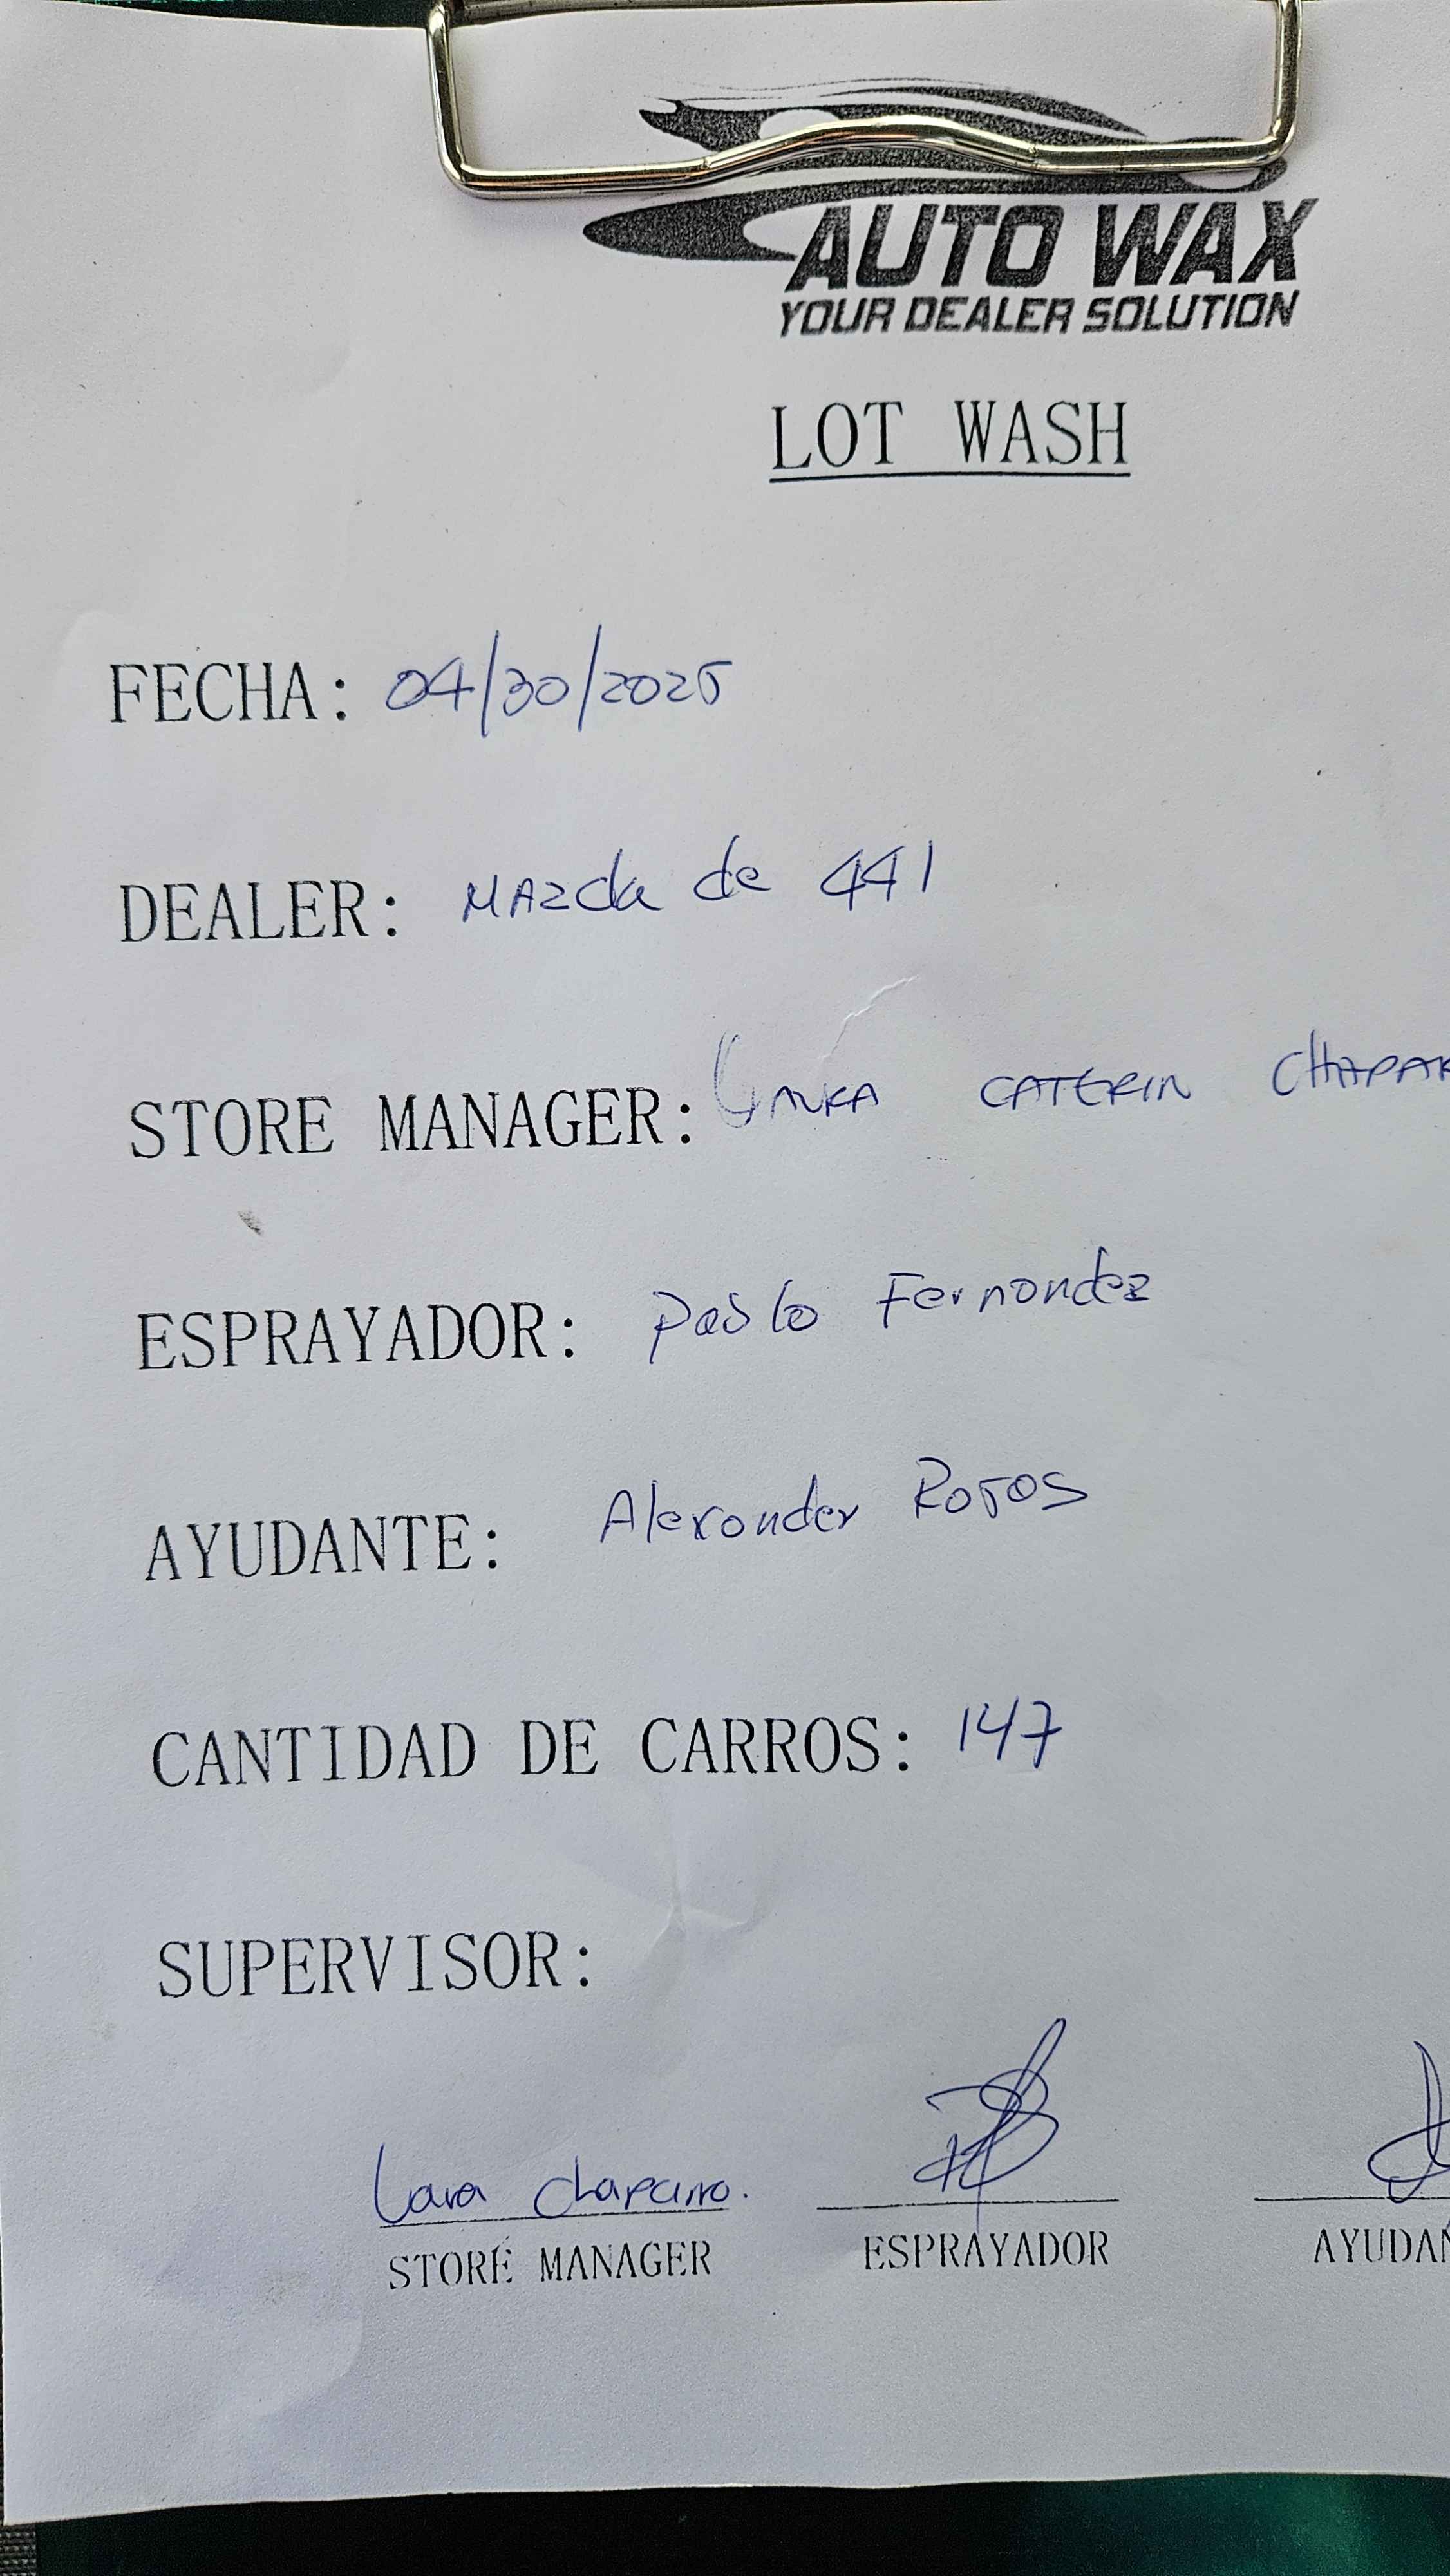 AUTO WAX
YOUR DEALER SOLUTION
LOT WASH
FECHA: 04/30/2025
DEALER: MAzda de 441
STORE MANAGER: CATERIN CHAPAR
ESPRAYADOR: Pablo Fernandez
AYUDANTE: Alexander Rojas
CANTIDAD DE CARROS: 147
SUPERVISOR:
Chaparro.
STORE MANAGER ESPRAYADOR AYUDAN